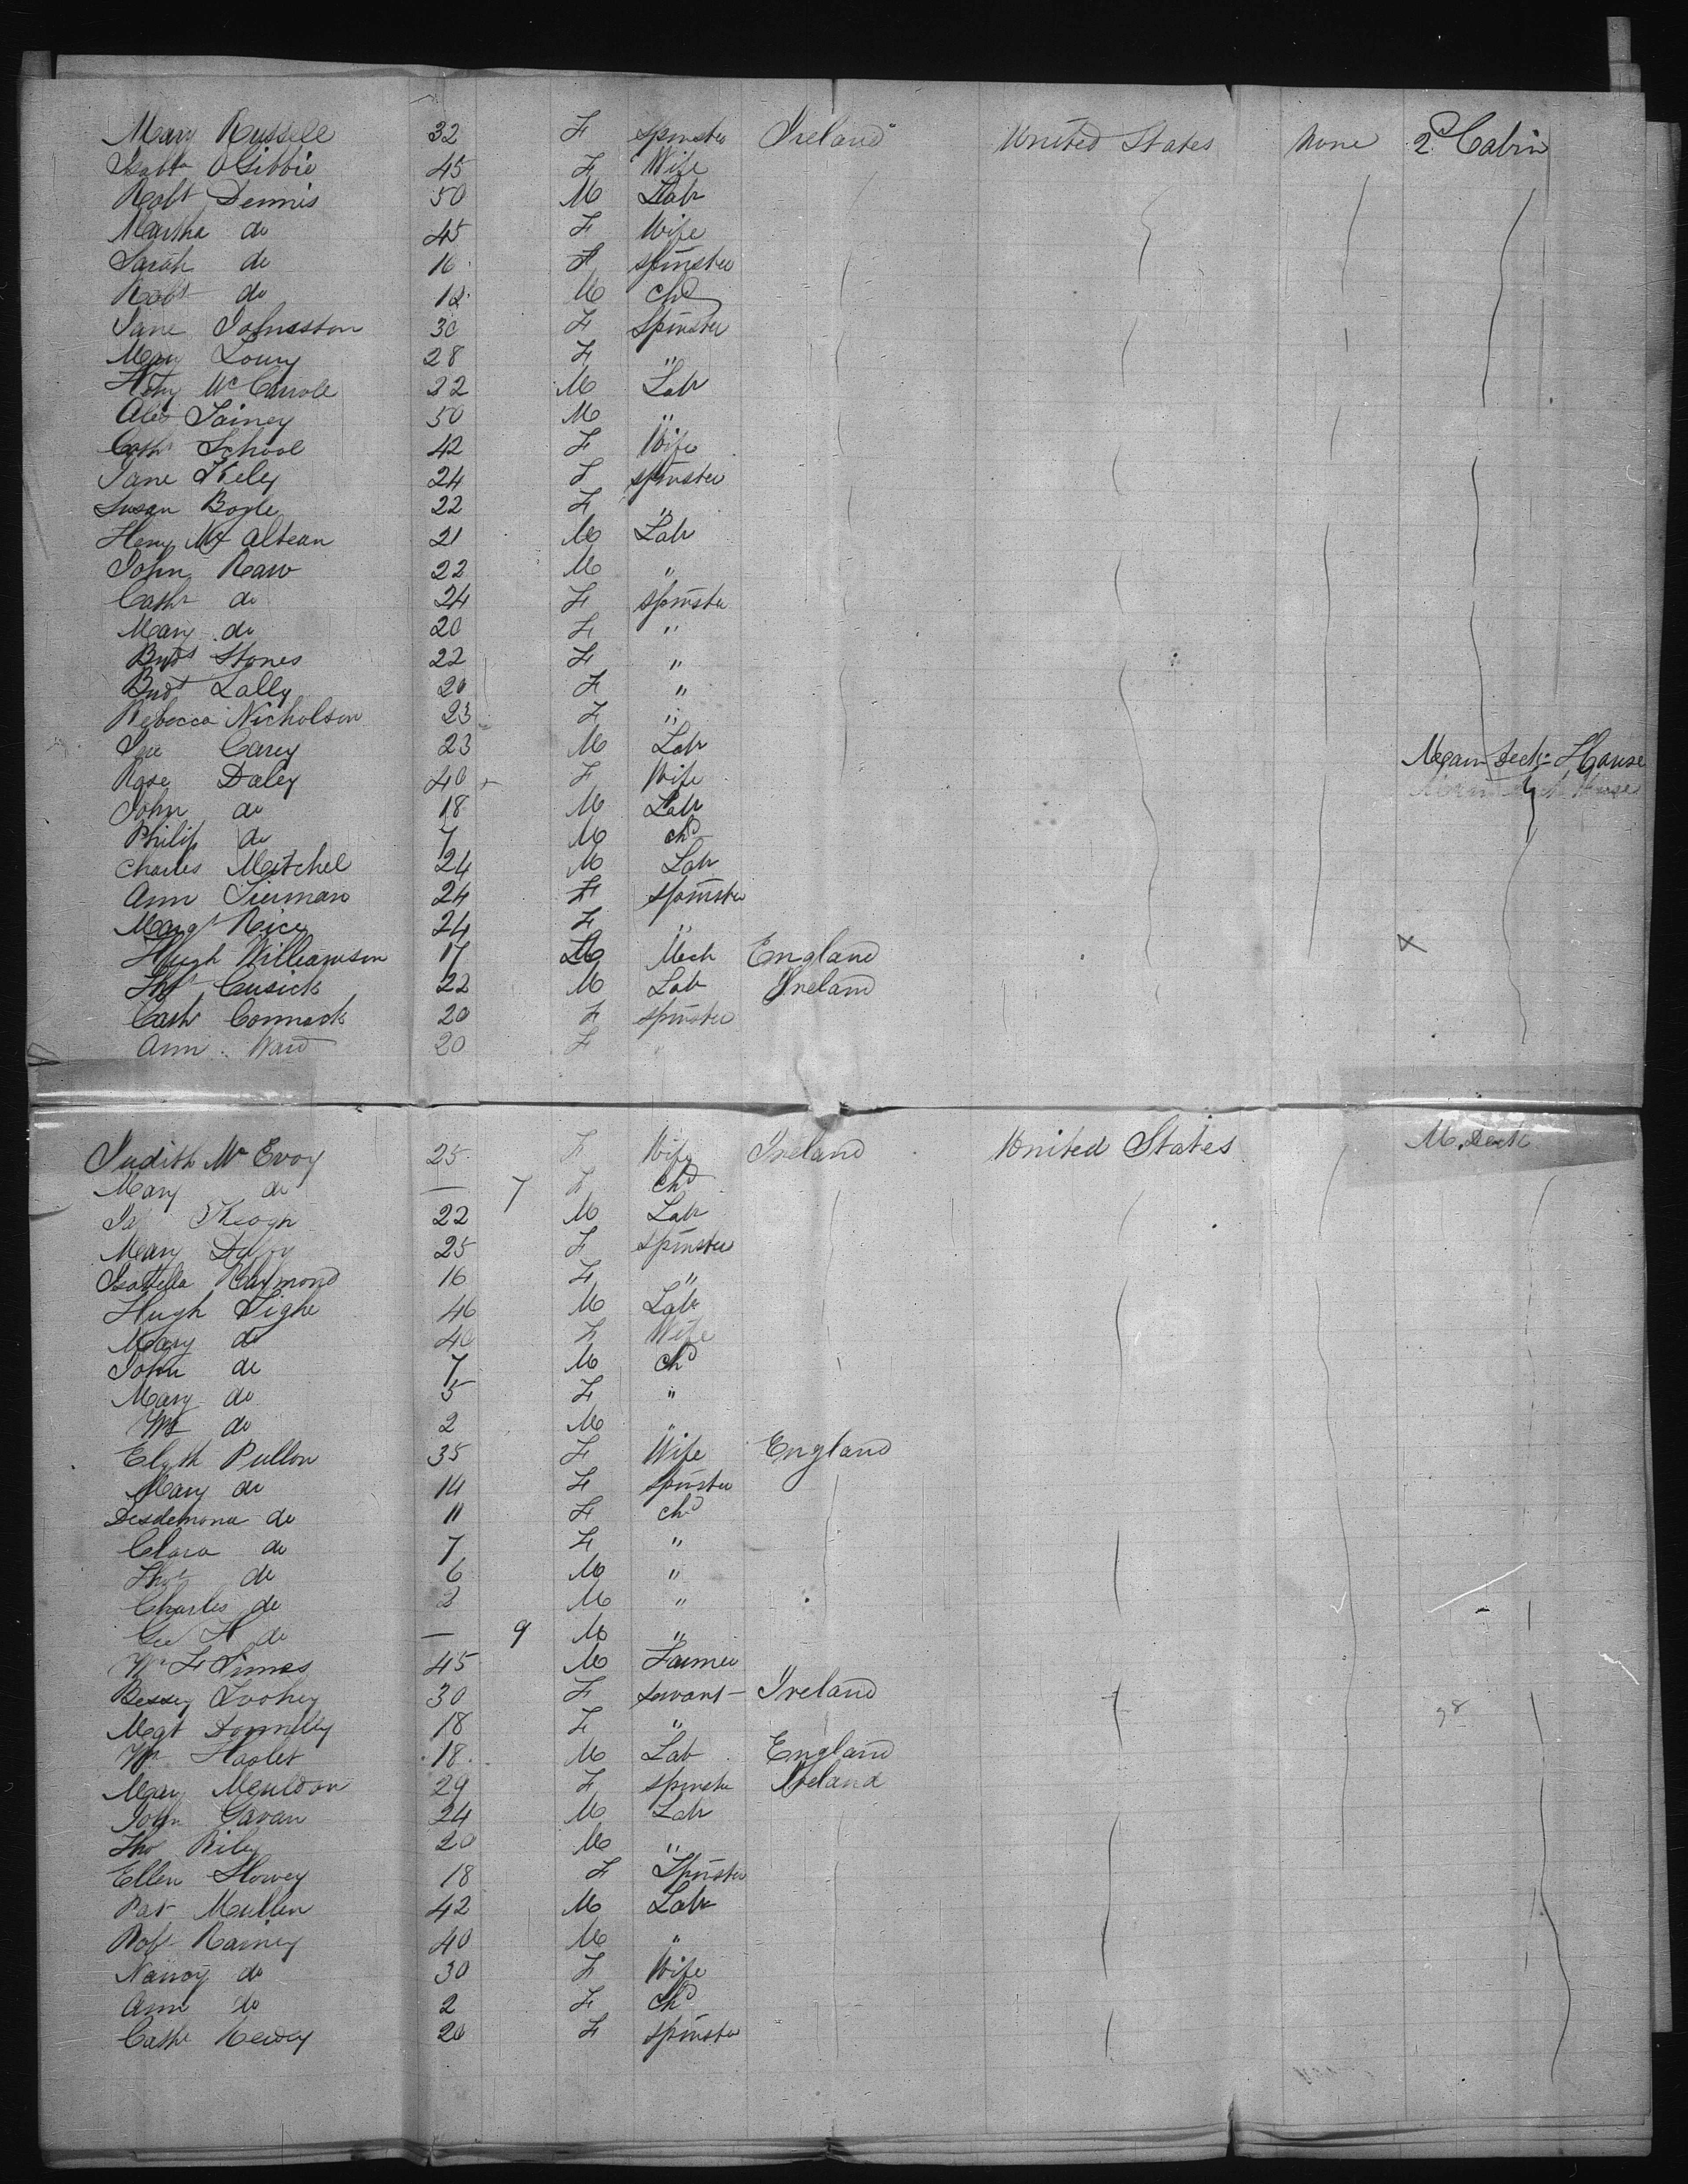 Mary Russell 32 F Spinster Ireland United States None 2d Cabin
Isab'a OGibbie 45 F Wife
Robt Dennis 50 M Lab
Martha do 45 F Wife
Sarah do 16 F Spinster
Robt do 12 M chd
Jane Johnsston 30 F Spinster
Mary Loury 28 F "
Hny McCarroll 22 M Lab
Alex 50 M "
Cath School 42 F Wife
Jane Kiely 24 F Spinster
Susan Boyle 22 F "
Heny Mc Altean 21 M Lab
John Raw 22 M "
Cathr do 24 F Spinster
Mary do 20 F "
Stones 22 F "
Bridt Lally 20 F "
Rebecca Nicholson 23 F "
Carey 23 M Lab Main deck House
Rose Daley 40 F Wife
John do 18 M Lab
Philip do 7 M chd
Charles Mitchel 24 M Lab
Ann Tierman 24 F Spinster
Margt Rice 24 F "
Hugh Williamson 17 M Mech England X
Cusick 22 M Lab Ireland
Cath Cormack 20 F Spinster
Ann Ward 20 F
Judith McEvoy 25 F Wife Ireland United States M. Deck
Mary do — 7 F Chd
Ja Keogh 22 M Lab
Mary Duffy 25 F Spinster
Isabella Raymond 16 F "
Hugh Tighe 46 M Lab
Mary do 40 F Wife
John do 7 M chd
Mary do 5 F "
Wm do 2 M "
Elyth Pullon 35 F Wife England
Mary do 14 F Spinster
Desdemona do 11 F chd
Clara do 7 F "
Thos do 6 M "
Charles do 2 M "
Geo H do — 9 M "
Wm F Simes 45 M Farmer
Bessey Loohey 30 F Servant Ireland
Mgt Donnelly 18 F "
Wm Haslet 18 M Lab England
Mary Muldon 29 F Spinster Ireland
John Gavan 24 M Lab
Tho Riley 20 M "
Ellen Slowey 18 F Spinster
Pat Mullen 42 M Lab
Rob Rainey 40 M "
Nancy do 30 F Wife
Ann do 2 F Chd
Cath 20 F Spinster